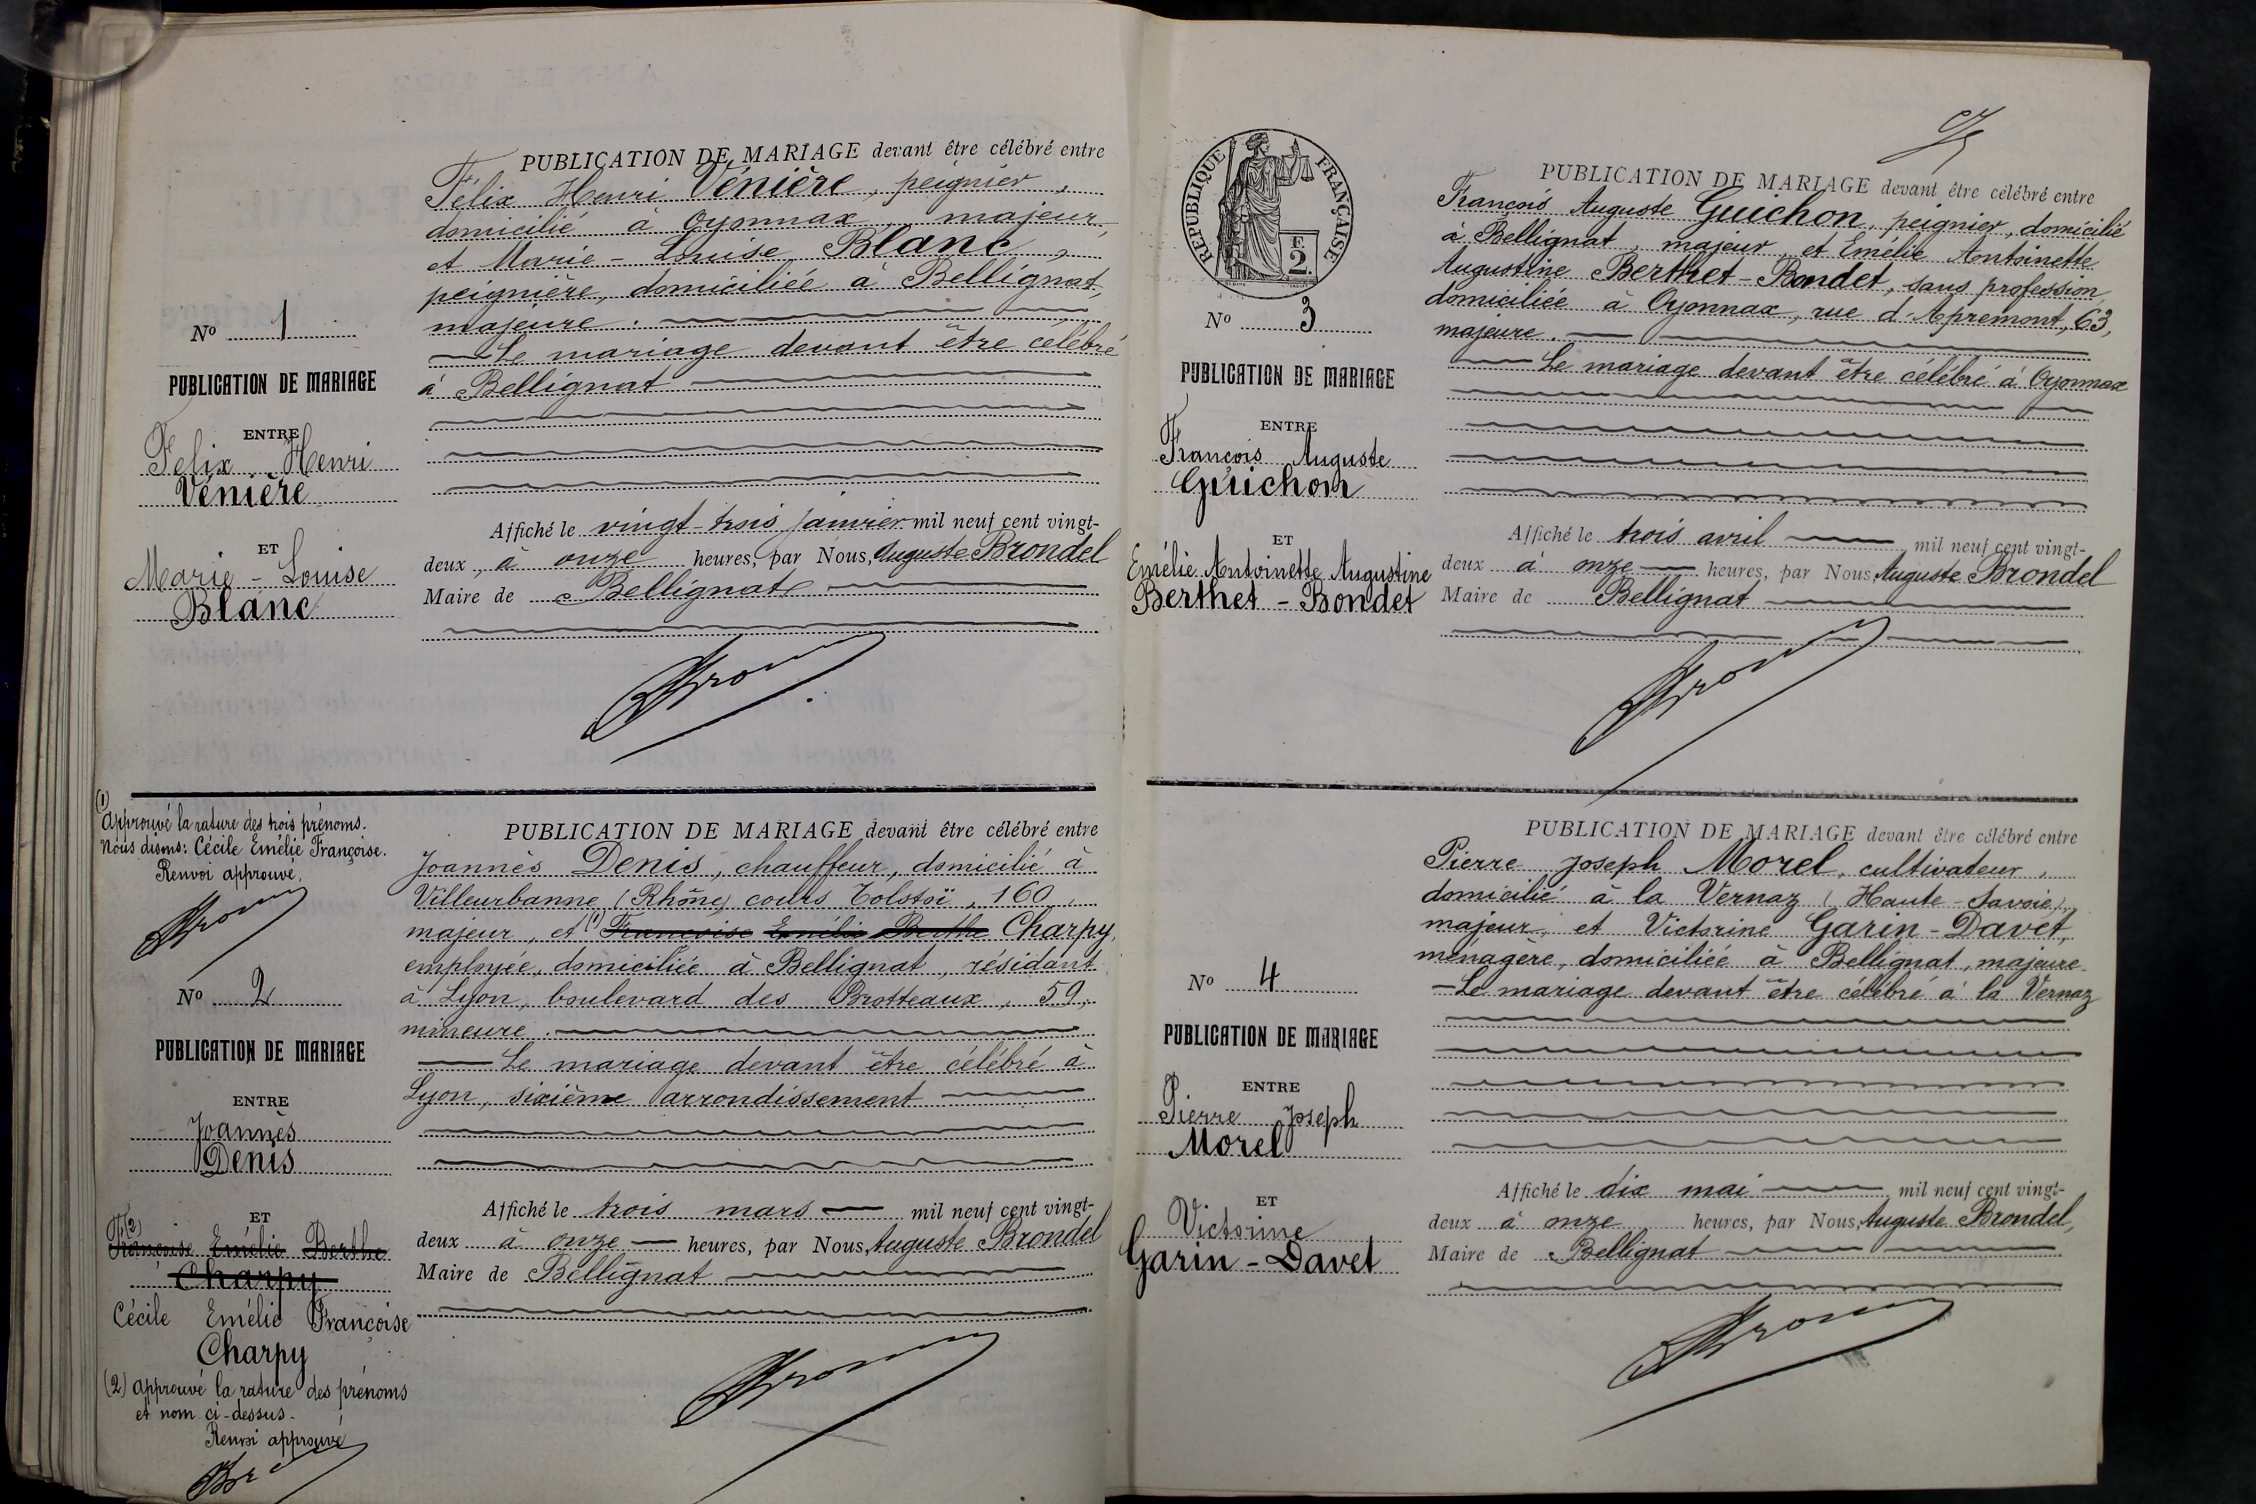 PUBLICATION DE MARIAGE devant être célébré entre
Félix Henri Vénière, peignier,
domicilié à Oyonnax, majeur,
et Marie-Louise Blanc,
peignière, domiciliée à Bellignat,
majeure.
Le mariage devant être célébré
à Bellignat
Nº 1
PUBLICATION DE MARIAGE
ENTRE
Félix Henri
Vénière
ET
Marie-Louise
Blanc
Affiché le vingt-trois janvier mil neuf cent vingt-
deux, à onze heures, par Nous, Auguste Brondel
Maire de Bellignat
(1)
Approuvé la rature des trois prénoms.
Nous disons: Cécile Emélie Françoise.
Renvoi approuvé.
Nº 2
PUBLICATION DE MARIAGE
ENTRE
Joannès
Denis
ET
(2)
Françoise Emélie Berthe
Charpy
Cécile Emélie Françoise
Charpy
(2) Approuvé la rature des prénoms
et nom ci-dessus.
Renvoi approuvé
PUBLICATION DE MARIAGE devant être célébré entre
Joannès Denis, chauffeur, domicilié à
Villeurbanne (Rhône) cours Tolstoï, 160,
majeur, et (1) Françoise Emélie Berthe Charpy,
employée, domiciliée à Bellignat, résidant
à Lyon, boulevard des Brotteaux, 59,
mineure.
Le mariage devant être célébré à
Lyon, sixième arrondissement
Affiché le trois mars mil neuf cent vingt-
deux à onze heures, par Nous, Auguste Brondel
Maire de Bellignat
RÉPUBLIQUE FRANÇAISE
F.
2.
Nº 3
PUBLICATION DE MARIAGE
ENTRE
François Auguste
Guichon
ET
Emélie Antoinette Augustine
Berthet-Bondet
PUBLICATION DE MARIAGE devant être célébré entre
François Auguste Guichon, peignier, domicilié
à Bellignat, majeur, et Emélie Antoinette
Augustine Berthet-Bondet, sans profession,
domiciliée à Oyonnax, rue d'Apremont, 63,
majeure.
Le mariage devant être célébré à Oyonnax
Affiché le trois avril mil neuf cent vingt-
deux à onze heures, par Nous, Auguste Brondel
Maire de Bellignat
Nº 4
PUBLICATION DE MARIAGE
ENTRE
Pierre Joseph
Morel
ET
Victorine
Garin-Davet
PUBLICATION DE MARIAGE devant être célébré entre
Pierre Joseph Morel, cultivateur,
domicilié à la Vernaz (Haute-Savoie),
majeur, et Victorine Garin-Davet,
ménagère, domiciliée à Bellignat, majeure.
Le mariage devant être célébré à la Vernaz
Affiché le dix mai mil neuf cent vingt-
deux à onze heures, par Nous, Auguste Brondel,
Maire de Bellignat